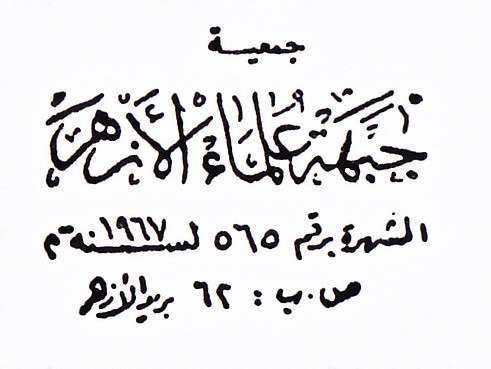 جمعية
جَبْهَة عُلَمَاءِ الأَزْهَرْ
المشهرة برقم ٥٦٥ لسنة ١٩٦٧م
ص.ب : ٦٢ بريد الأزهر